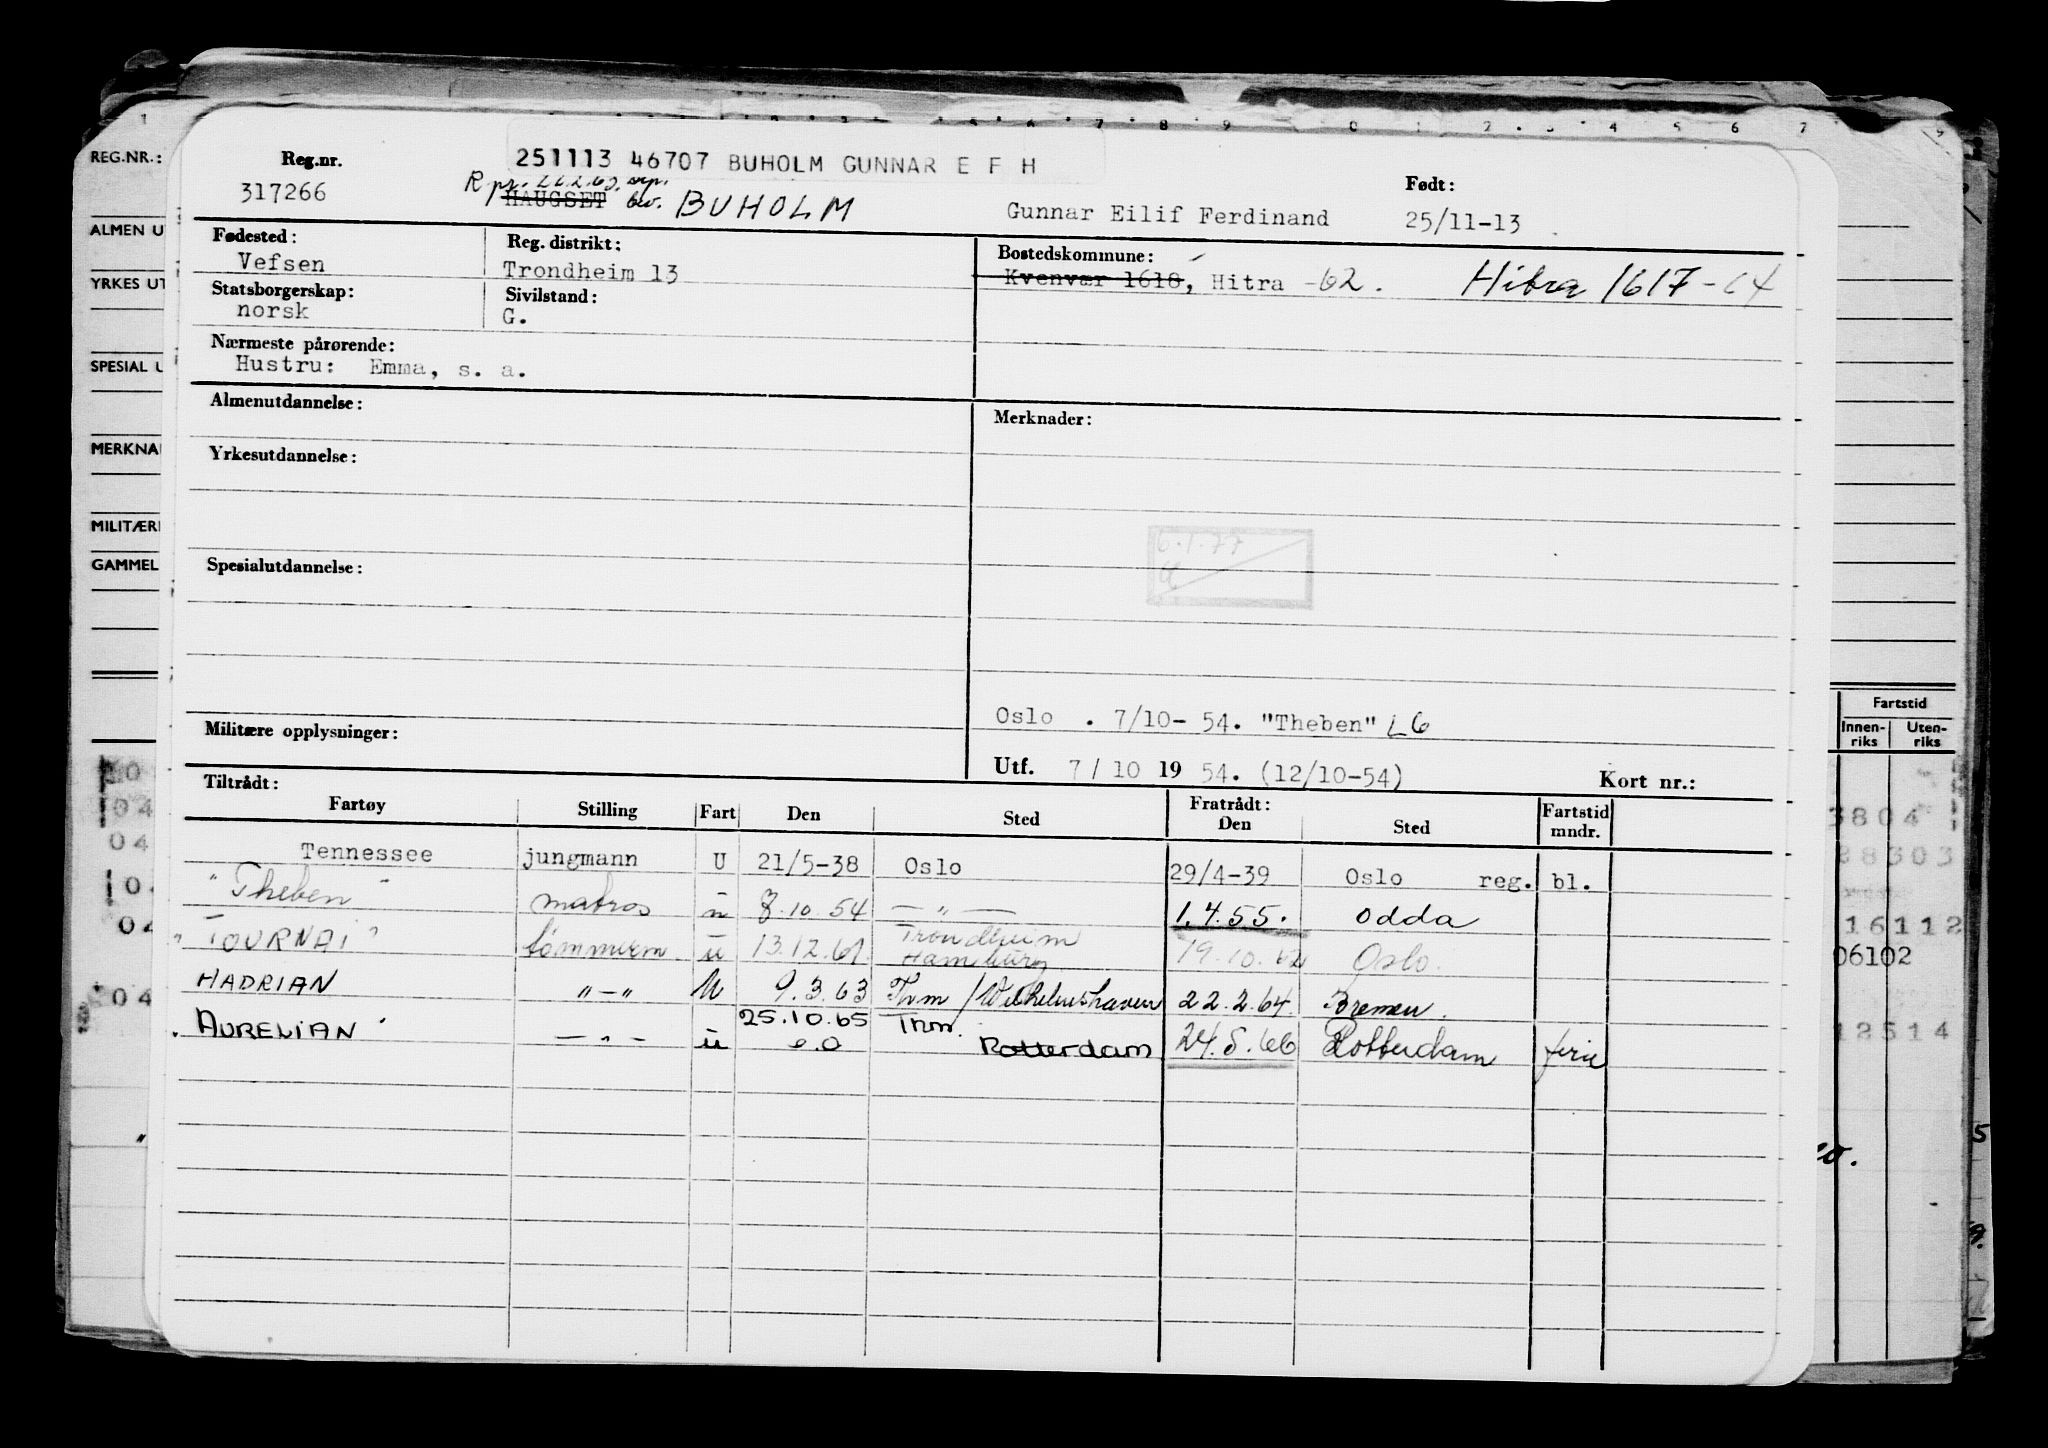 REG.NR.:
ALMEN U
YRKES UT
SPECIAL U
MERKNA
MILITÆR
GAMMEL
251113 46707 BUHOLM GUNNAR E F H
Reg.nr. Født:
317266 HAUGSET BUHOLM Gunnar Eilif Ferdinand 25/11-13
Fødested: Reg. distrikt: Bostedskommune:
Vefsen Trondheim 13 Kvenvær 1618, Hitra -62. Hitra 1617-64
Statsborgerskap: Sivilstand:
norsk G.
Nærmeste pårørende:
Hustru: Emma, s. a.
Almenutdannelse: Merknader:
Yrkesutdannelse:
6.1.77
Spesialutdannelse:
Oslo . 7/10- 54. "Theben" L6
Militære opplysninger:
Utf. 7/10 19 54. (12/10-54) Kort nr.:
Tiltrådt: Fratrådt:
Fartøy Stilling Fart Den Sted Den Sted Fartstid mndr.
Tennessee jungmann U 21/5-38 Oslo 29/4-39 Oslo reg. bl.
"Theben" matros u 8.10.54 — " — 1.4.55. Odda
"TOURNAI" tømmerm. u 13.12.61. Trondheim Hamburg 19.10.62 Oslo.
HADRIAN "—" U 9.3.63 Trm / Wilhelmshaven 22.2.64. Bremen.
AURELIAN — " — u 25.10.65 Trm. Rotterdam 24.5.66 Rotterdam ferie
Fartstid
Innen-riks Uten-riks
3804
38303
16112
06102
12514